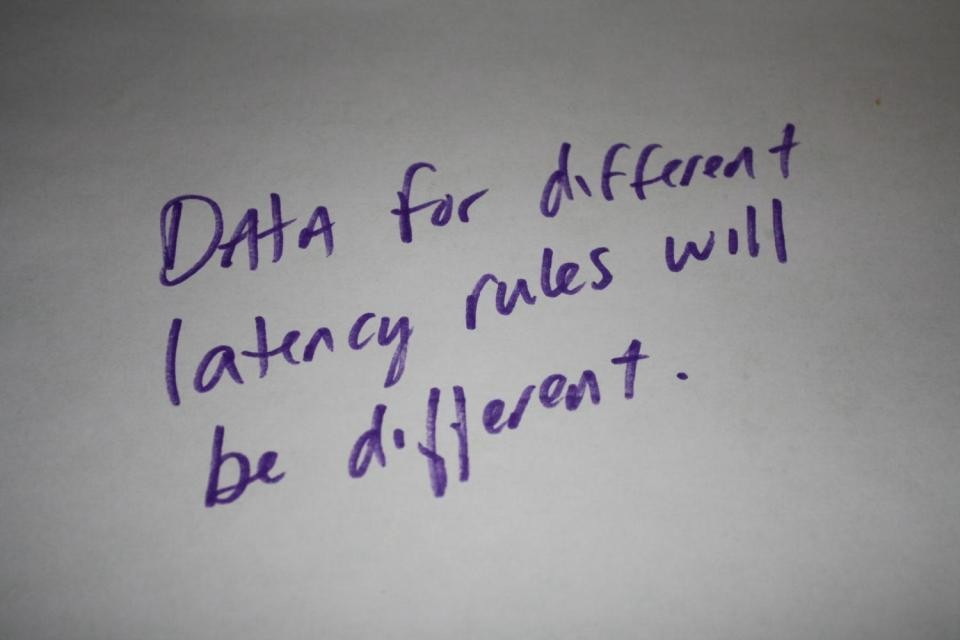 DAtA for different
latency rules will
be different.